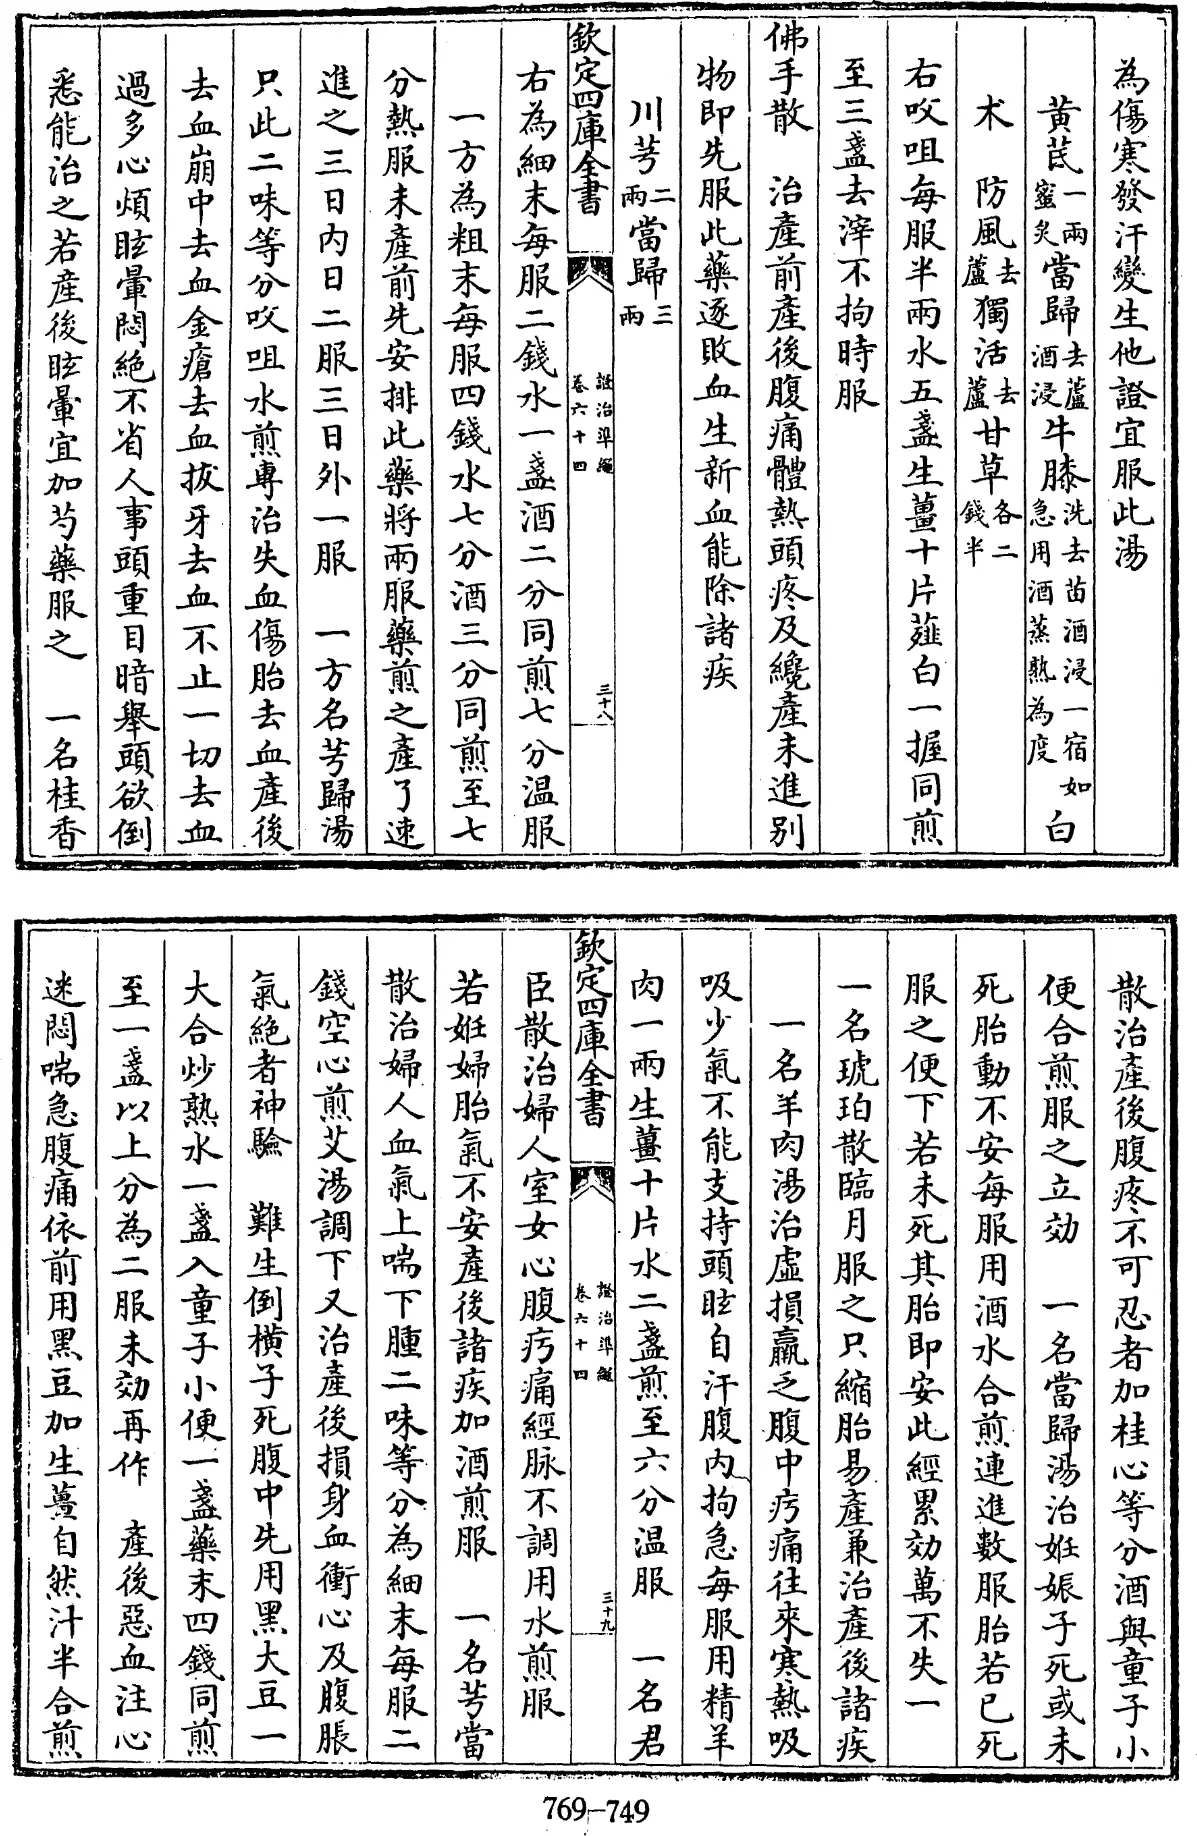 為傷寒發汗變生他證宜服此湯
黄芪一兩蜜炙當歸去蘆酒浸牛膝洗去苗酒浸一宿如急用酒蒸熟為度白
术　防風去蘆獨活去蘆甘草各二錢半
右㕮咀每服半兩水五盞生薑十片薤白一握同煎
至三盞去滓不拘時服
佛手散　治產前產後腹痛體熱頭疼及纔產未進別
物即先服此藥逐敗血生新血能除諸疾
川芎二兩當歸三兩
欽定四庫全書　證治準繩卷六十四　三十八
右為細末每服二錢水一盞酒二分同煎七分温服
一方為粗末每服四錢水七分酒三分同煎至七
分熱服未產前先安排此藥將兩服藥煎之產了速
進之三日内日二服三日外一服　一方名芎歸湯
只此二味等分㕮咀水煎專治失血傷胎去血產後
去血崩中去血金瘡去血拔牙去血不止一切去血
過多心煩眩暈悶絶不省人事頭重目暗舉頭欲倒
悉能治之若產後眩暈宜加芍藥服之　一名桂香
散治產後腹疼不可忍者加桂心等分酒與童子小
便合煎服之立効　一名當歸湯治姙娠子死或未
死胎動不安每服用酒水合煎連進數服胎若已死
服之便下若未死其胎即安此經累効萬不失一
一名琥珀散臨月服之只縮胎易產兼治產後諸疾
一名羊肉湯治虛損羸乏腹中㽲痛往來寒熱吸
吸少氣不能支持頭眩自汗腹内拘急每服用精羊
肉一兩生薑十片水二盞煎至六分温服　一名君
欽定四庫全書　證治準繩卷六十四　三十九
臣散治婦人室女心腹㽲痛經脉不調用水煎服
若姙婦胎氣不安產後諸疾加酒煎服　一名芎當
散治婦人血氣上喘下腫二味等分為細末每服二
錢空心煎艾湯調下又治產後損身血衝心及腹脹
氣絶者神驗　難生倒横子死腹中先用黑大豆一
大合炒熟水一盞入童子小便一盞藥末四錢同煎
至一盞以上分為二服未効再作　產後惡血注心
迷悶喘急腹痛依前用黑豆加生薑自然汁半合煎
769-749